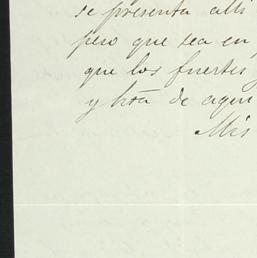 se presenta alli
pero que sea en
que los fuertes
y hta de agen
Mis